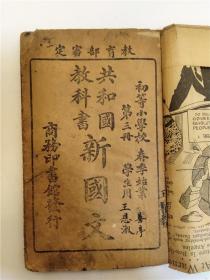 教育部審定
初等小學校 春季始業
第三冊 學生用
共和國教科書
新國文
商務印書館發行